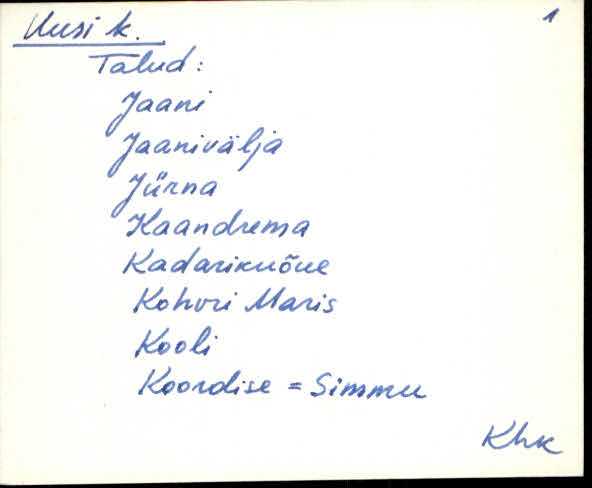 Uusi k. 1
Talud:
Jaani
Jaanivälja
Jürna
Kaandrema
Kadariknõue
Kohvri Maris
Kooli
Koordise = Simmu
Khk